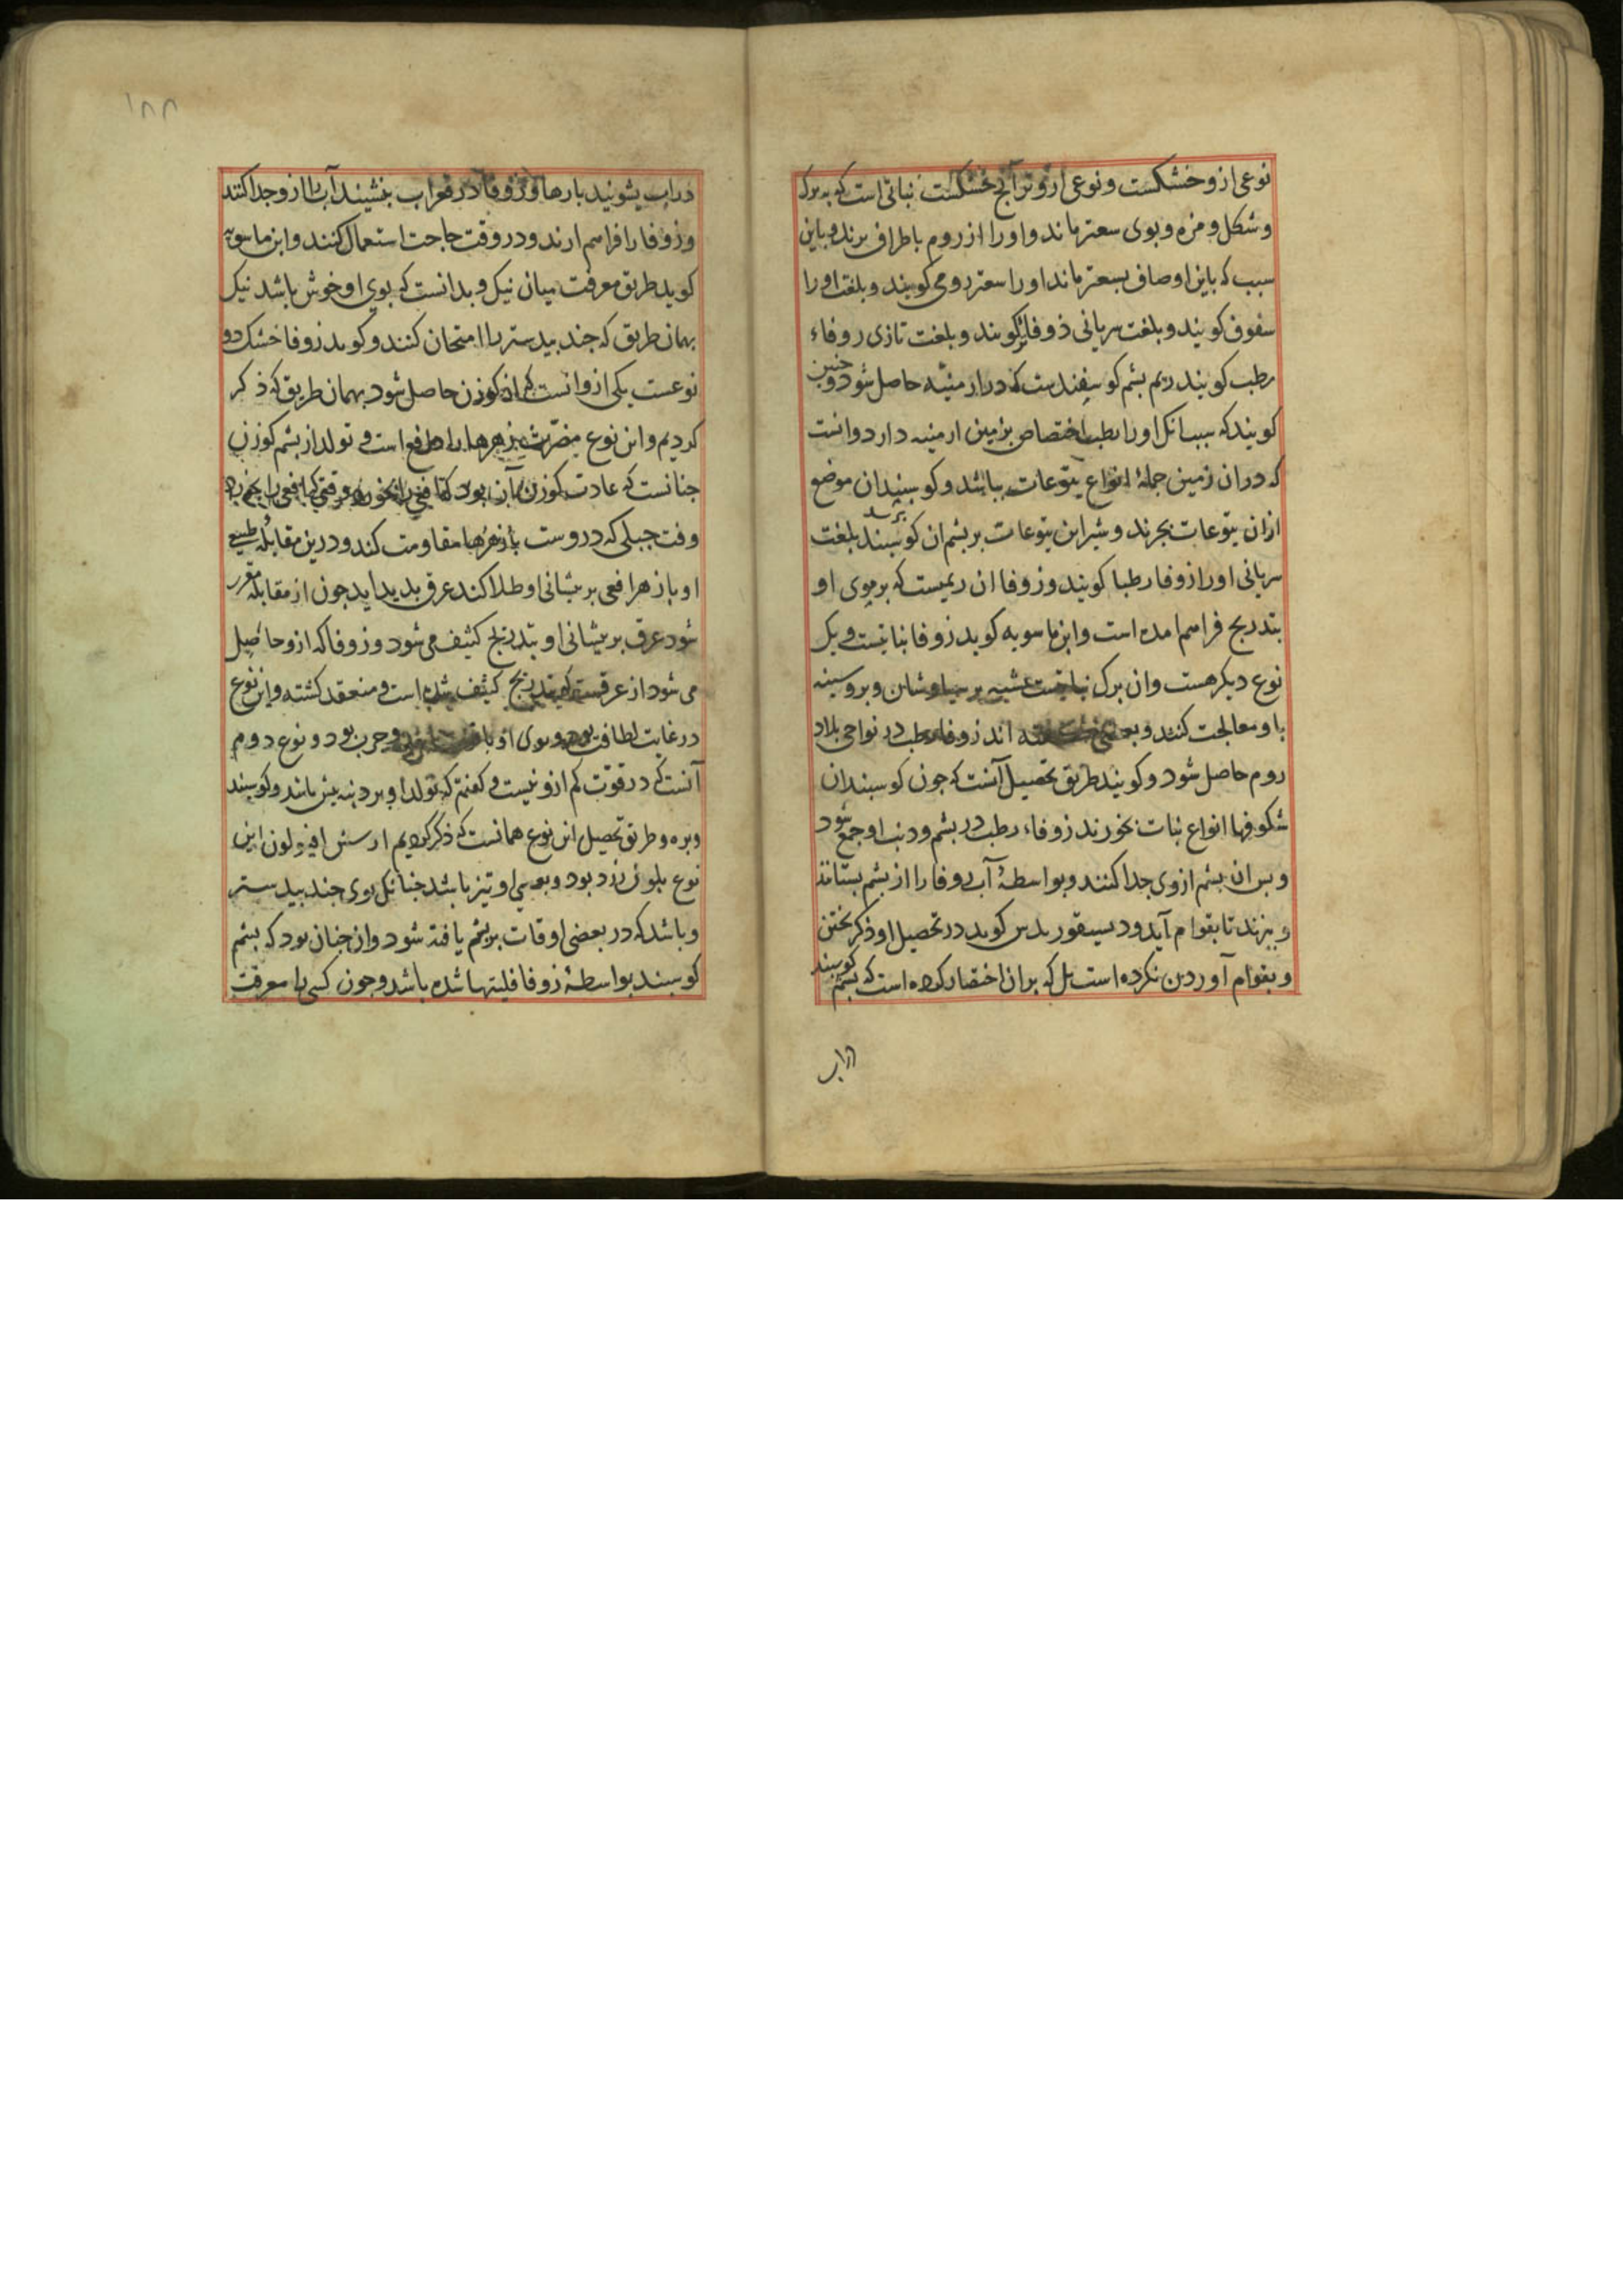 نوعی ازو خشکست و نوعی ازو تر آنج خشکست نباتی است که به برک
و شکل و مزه و بوی سعتر ماند و او را از روم باطراف برند و باین
سبب که باین اوصاف بسعتر ماند او را سعتر رومی کویند و بلغت او را
سفوف کویند و بلغت سریانی ذوفا کویند و بلغت تازی زوفاء
رطب کویند ریم بشم کوسفندست که در ارمنیّه حاصل شود و چنین
کویند که سبب انک او را رطب اختصاص بزمین ارمنیه دارد و انست
که دران زمین جملهٔ انواع یتوعات بباشد و کوسبندان موضع
ازان یتوعات بجرند و شیر این یتوعات بر بشم ان کوسبند بلغت
برسد
سریانی او را زوفا رطبا کویند و زوفا ان ریمیست که بر موی او
بتدریج فراهم امده است و ابن ماسویه کوید زوفا نباتیست و یک
نوع دیکر هست وان برک نباتیست شبیه برسیاوشان و بروسینه
باو معالجت کنند و بعضی کفته اند زوفاء رطب در نواحی بلاد
روم حاصل شود و کویند طریق تحصیل آنست که جون کوسبندان
شکوفها انواع نبات بخورند زوفاء رطب در بشم و دنب او جمع شود
و بس ان بشم ازوی جدا کنند و بواسطهٔ آب زوفا را از بشم بستانند
و ببزند تا بقوام آید و دیسقوریدس کوید در تحصیل او ذکر بختن
و بقوام آوردن نکرده است بل که بران اختصار کرده است که بشم کوسبند
دراب
۱۸۸
دراب بشویند بارها و زوفا در قعر اب بنشیند آب را ازو جدا کنند
و زوفا را فراهم ارند و در وقت حاجت استعمال کنند و ابن ماسویه
کوید طریق معرفت میان نیک و بد انست که بوی او خوش باشد نیک
بهمان طریق که جند بیدستر را امتحان کنند و کوید زوفا خشک دو
نوعست یکی ازو انست که از کوزن حاصل شود بهمان طریق که ذکر
کردیم و این نوع مضرّت زهرها را دافع است و تولد از بشم کوزن
جنانست که عادت کوزن آن بود که افعی را بخورد و وقتی که افعی را بخورد
وقت جبلی که دروست با زهرها مقاومت کند و درین مقابله طبیعی
او با زهر افعی بر بیشانی او طلا کند عرق بدید اید جون از مقابله مقرر
شود عرق بر بیشانی او بتدریج کثیف می شود و زوفا که ازو حاصل
می شود از عرقست که بتدریج کثیف شده است و منعقد کشته و این نوع
در غایت لطافت بود و بوی او با و جرب بود و نوع دوم
آنست که در قوّت کم ازو نیست و کفتیم که تولد او بر دنبه میش باشد و کوسبند
و بره و طریق تحصیل این نوع همانست که ذکر کردیم از بیش این
نوع بلون زرد بود و بوی او تیز باشد جنانک بوی جند بیدستر
و باشد که در بعضی اوقات بر بشم یافته شود وان جنان بود که بشم
کوسبند بواسطهٔ زوفا فلیتها شده باشد و جون کسی را معرفت